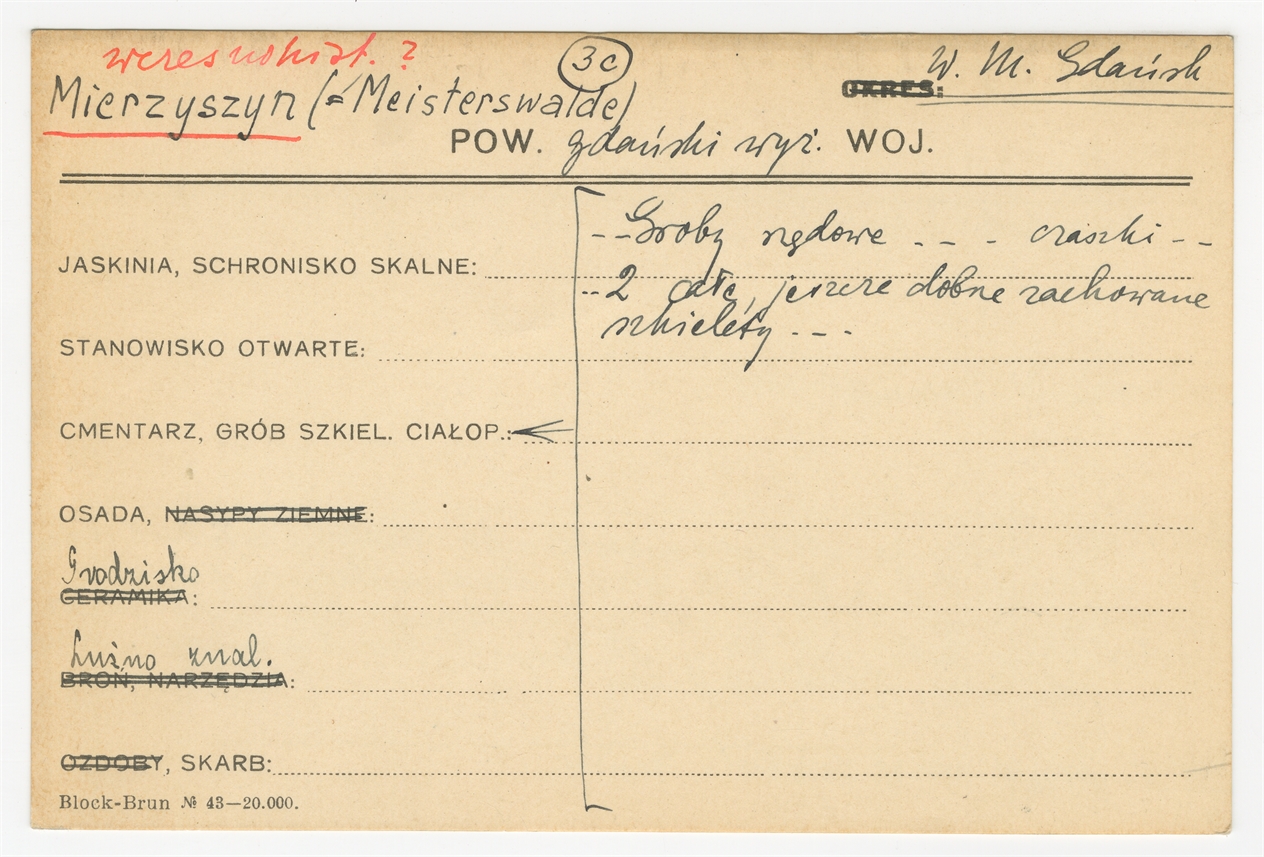 wczesnohist. ?
3c
W. M. Gdańsk
OKRES:
Mierzyszyn (= Meisterswalde)
POW. gdański wyż. WOJ.
- - Groby rzędowe - - - czaszki - -
JASKINIA, SCHRONISKO SKALNE:
-- 2 całe, jeszcze dobrze zachowane
szkielety - - -
STANOWISKO OTWARTE:
CMENTARZ, GRÓB SZKIEL. CIAŁOP.:
OSADA, NASYPY ZIEMNE:
Grodzisko
CERAMIKA:
Luźno znal.
BROŃ, NARZĘDZIA:
OZDOBY, SKARB:
Block-Brun № 43—20.000.